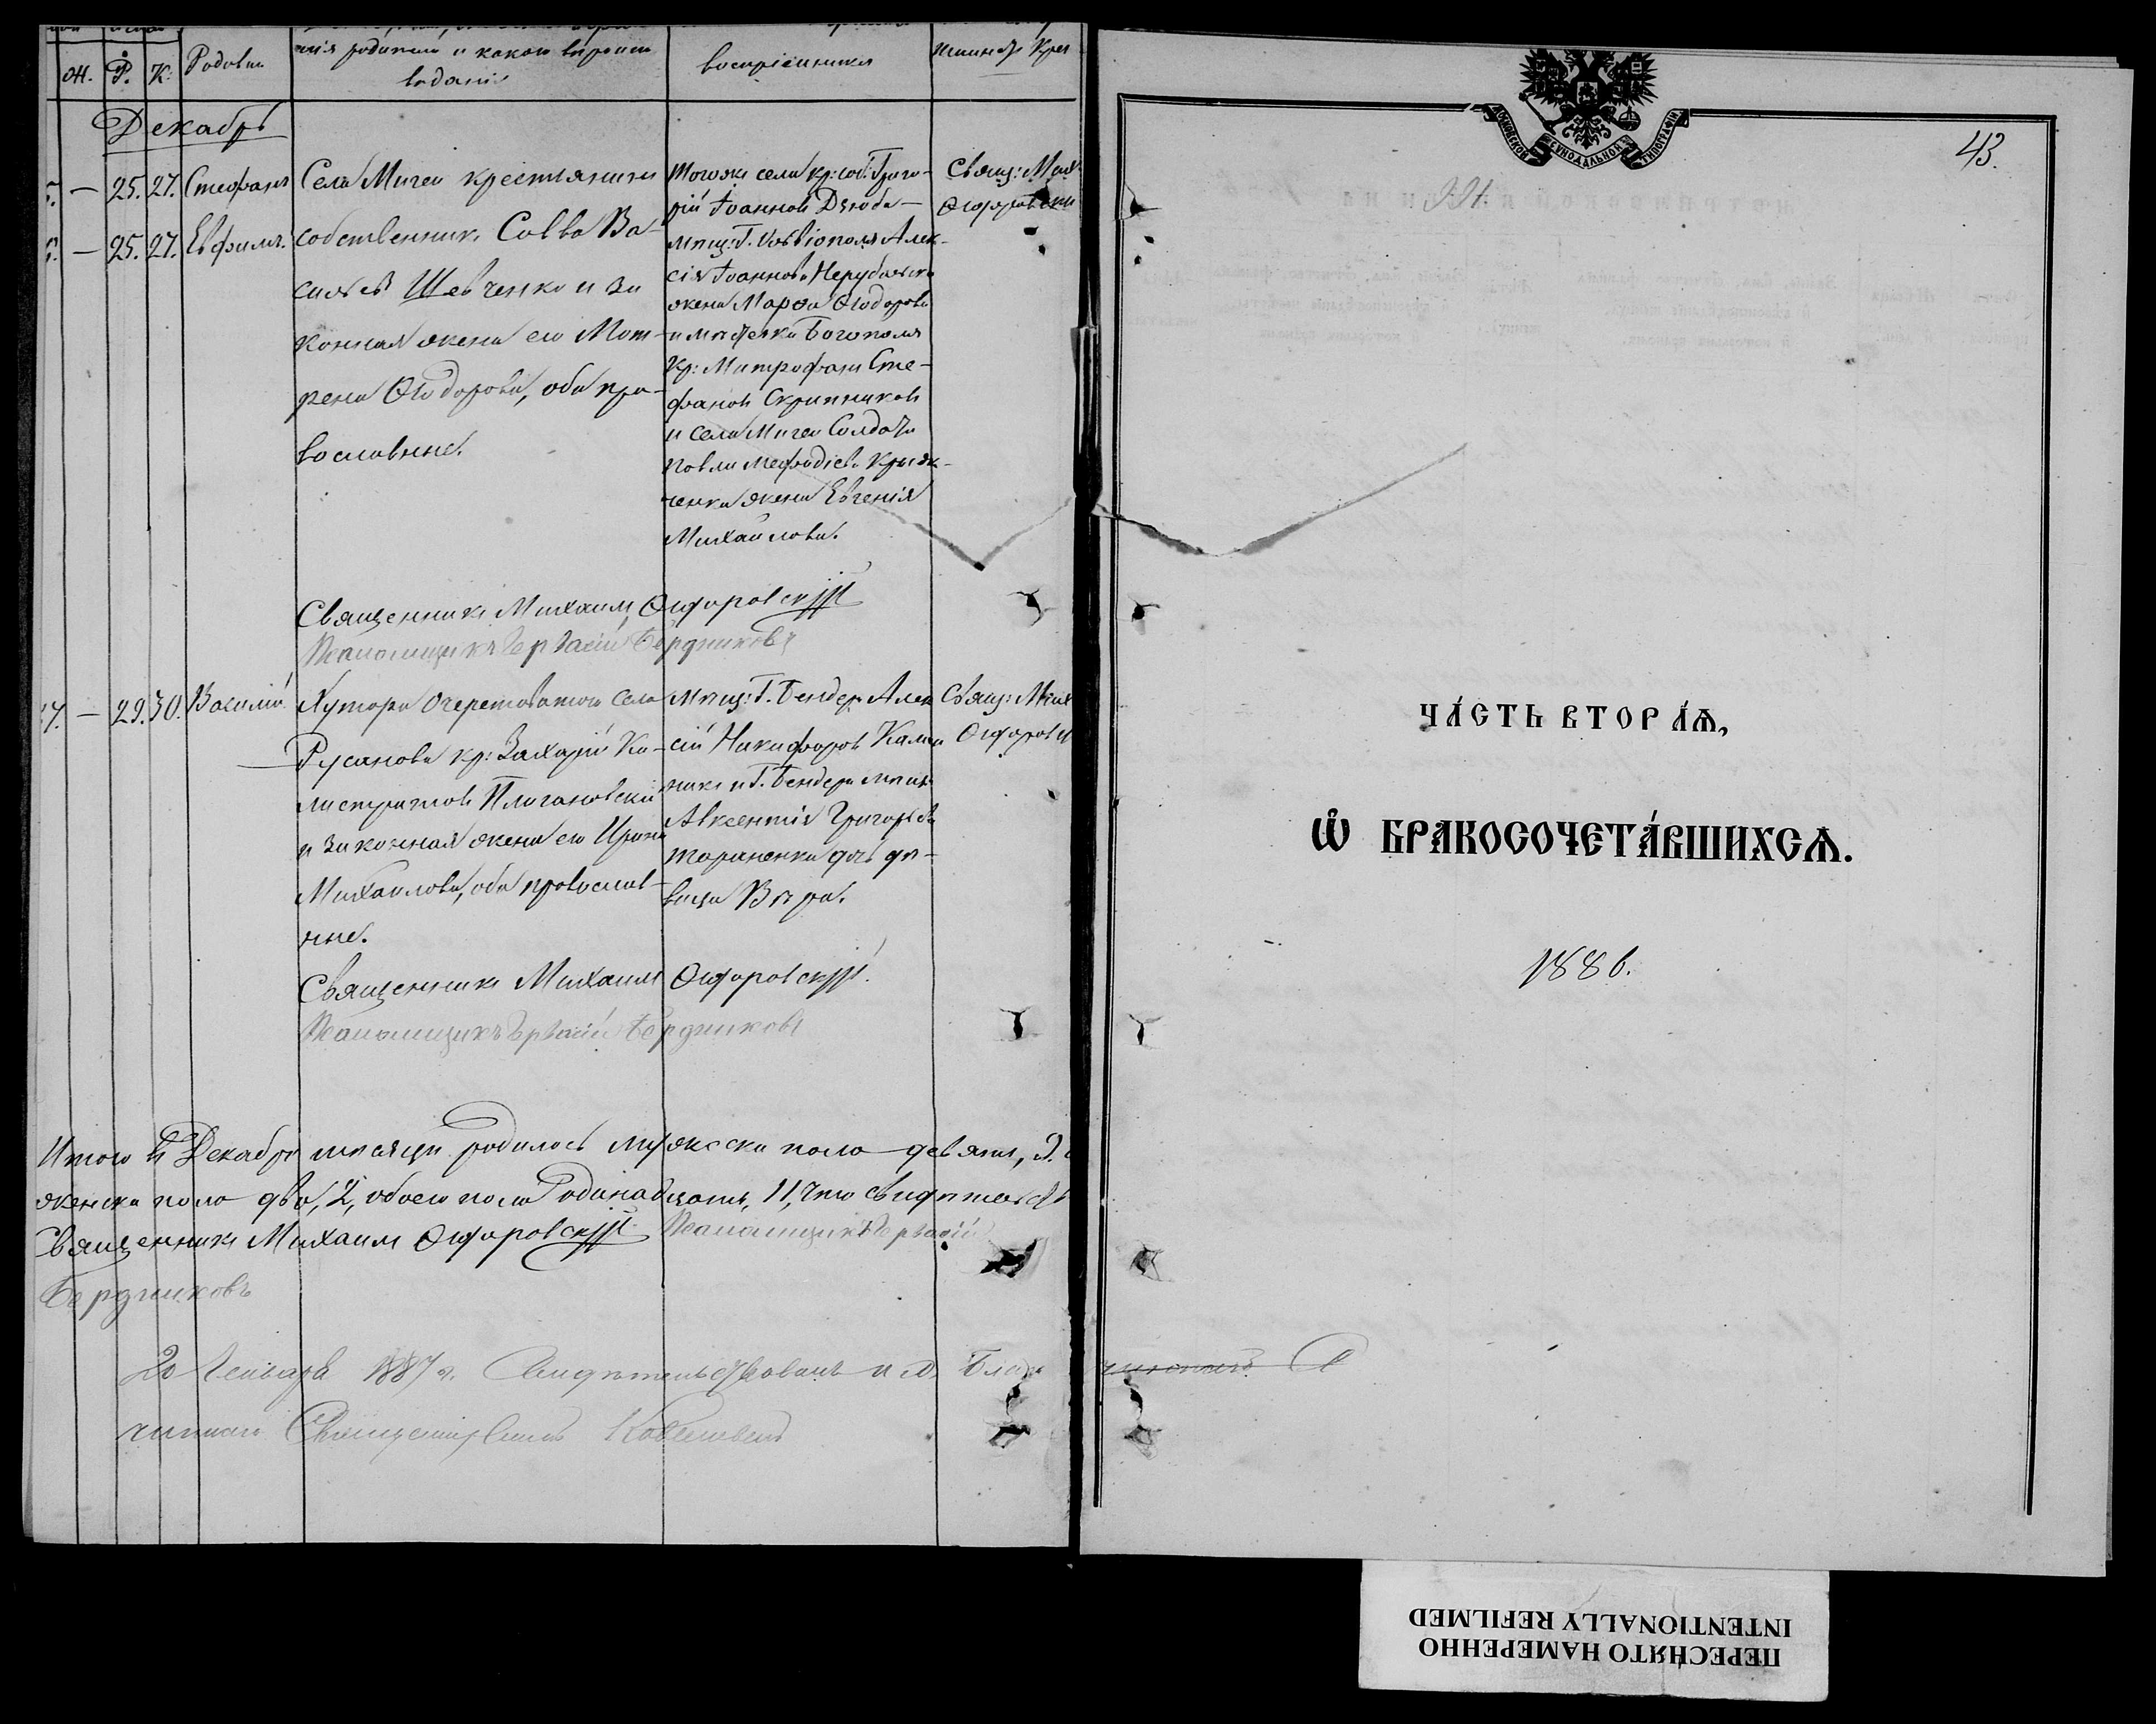 Ж. Р. К. Родовш
нія родители и какого вѣроисп
воспріемники
веданія
Декабрь
— 25. 27. Стефанъ
— 25. 27. Евфимъ.
Села Мигеи крестьянинъ
собственникъ Савва Ва-
сильевъ Шевченко и за
конная жена его Мат-
рена Ѳеодорова, оба пра-
вославные.
Тогожъ села кр: соб: Григо-
рій Іоанновъ Дзюба —
мѣщ: Г. Новѣіополя Алек-
сія Іоаннова Нерубальска
жена Марѳа Ѳеодорова
и мѣстечка Богополя
Кр: Митрофанъ Сте-
фановъ Скрипниковъ
и села Мигеи Солдата
Павла Меѳодіева
ченка жена Евгенія
Михайлова.
Свящ: Мих
Священникъ Михаилъ Ѳедоровскій
Псаломщикъ Гервасій Бердниковъ
7. — 29. 30. Василій
Хутора Очеретоватого села
Русанова кр: Захарій Ка-
листратовъ Плигановскій
и законная жена его Ирина
Михайлова, оба православ-
ные.
Мѣщ: Г. Бендеръ Алек
сій Никифоровъ
никъ и Г. Бендеръ мѣщ
Авксентія Григорьева
Тараненка дочь дѣ-
вица Вѣра.
Свящ: Мих
Ѳедоровск
Священникъ Михаилъ Ѳедоровскій.
Псаломщикъ Гервасій Бердниковъ
Итого въ Декабрѣ мѣсяцѣ родилось мужеска пола девять, 9.
женска пола два, 2, обоего пола одинадцать, 11, что свидѣтельств
Священникъ Михаилъ Ѳедоровскій Псаломщикъ Гервасій
Бердниковъ
20 Генваря 1887 г. Свидѣтельствовалъ и д. Благо
чиннаго Священникъ
МОСКОВСКОЙ СѴНОДАЛЬНОЙ ТИПОГРАФІИ
43.
ЧА́СТЬ ВТОРА́Ѧ,
Ѽ БРАКОСОЧЕТА́ВШИХСѦ.
1886.
ПЕРЕСНЯТО НАМЕРЕННО
INTENTIONALLY REFILMED